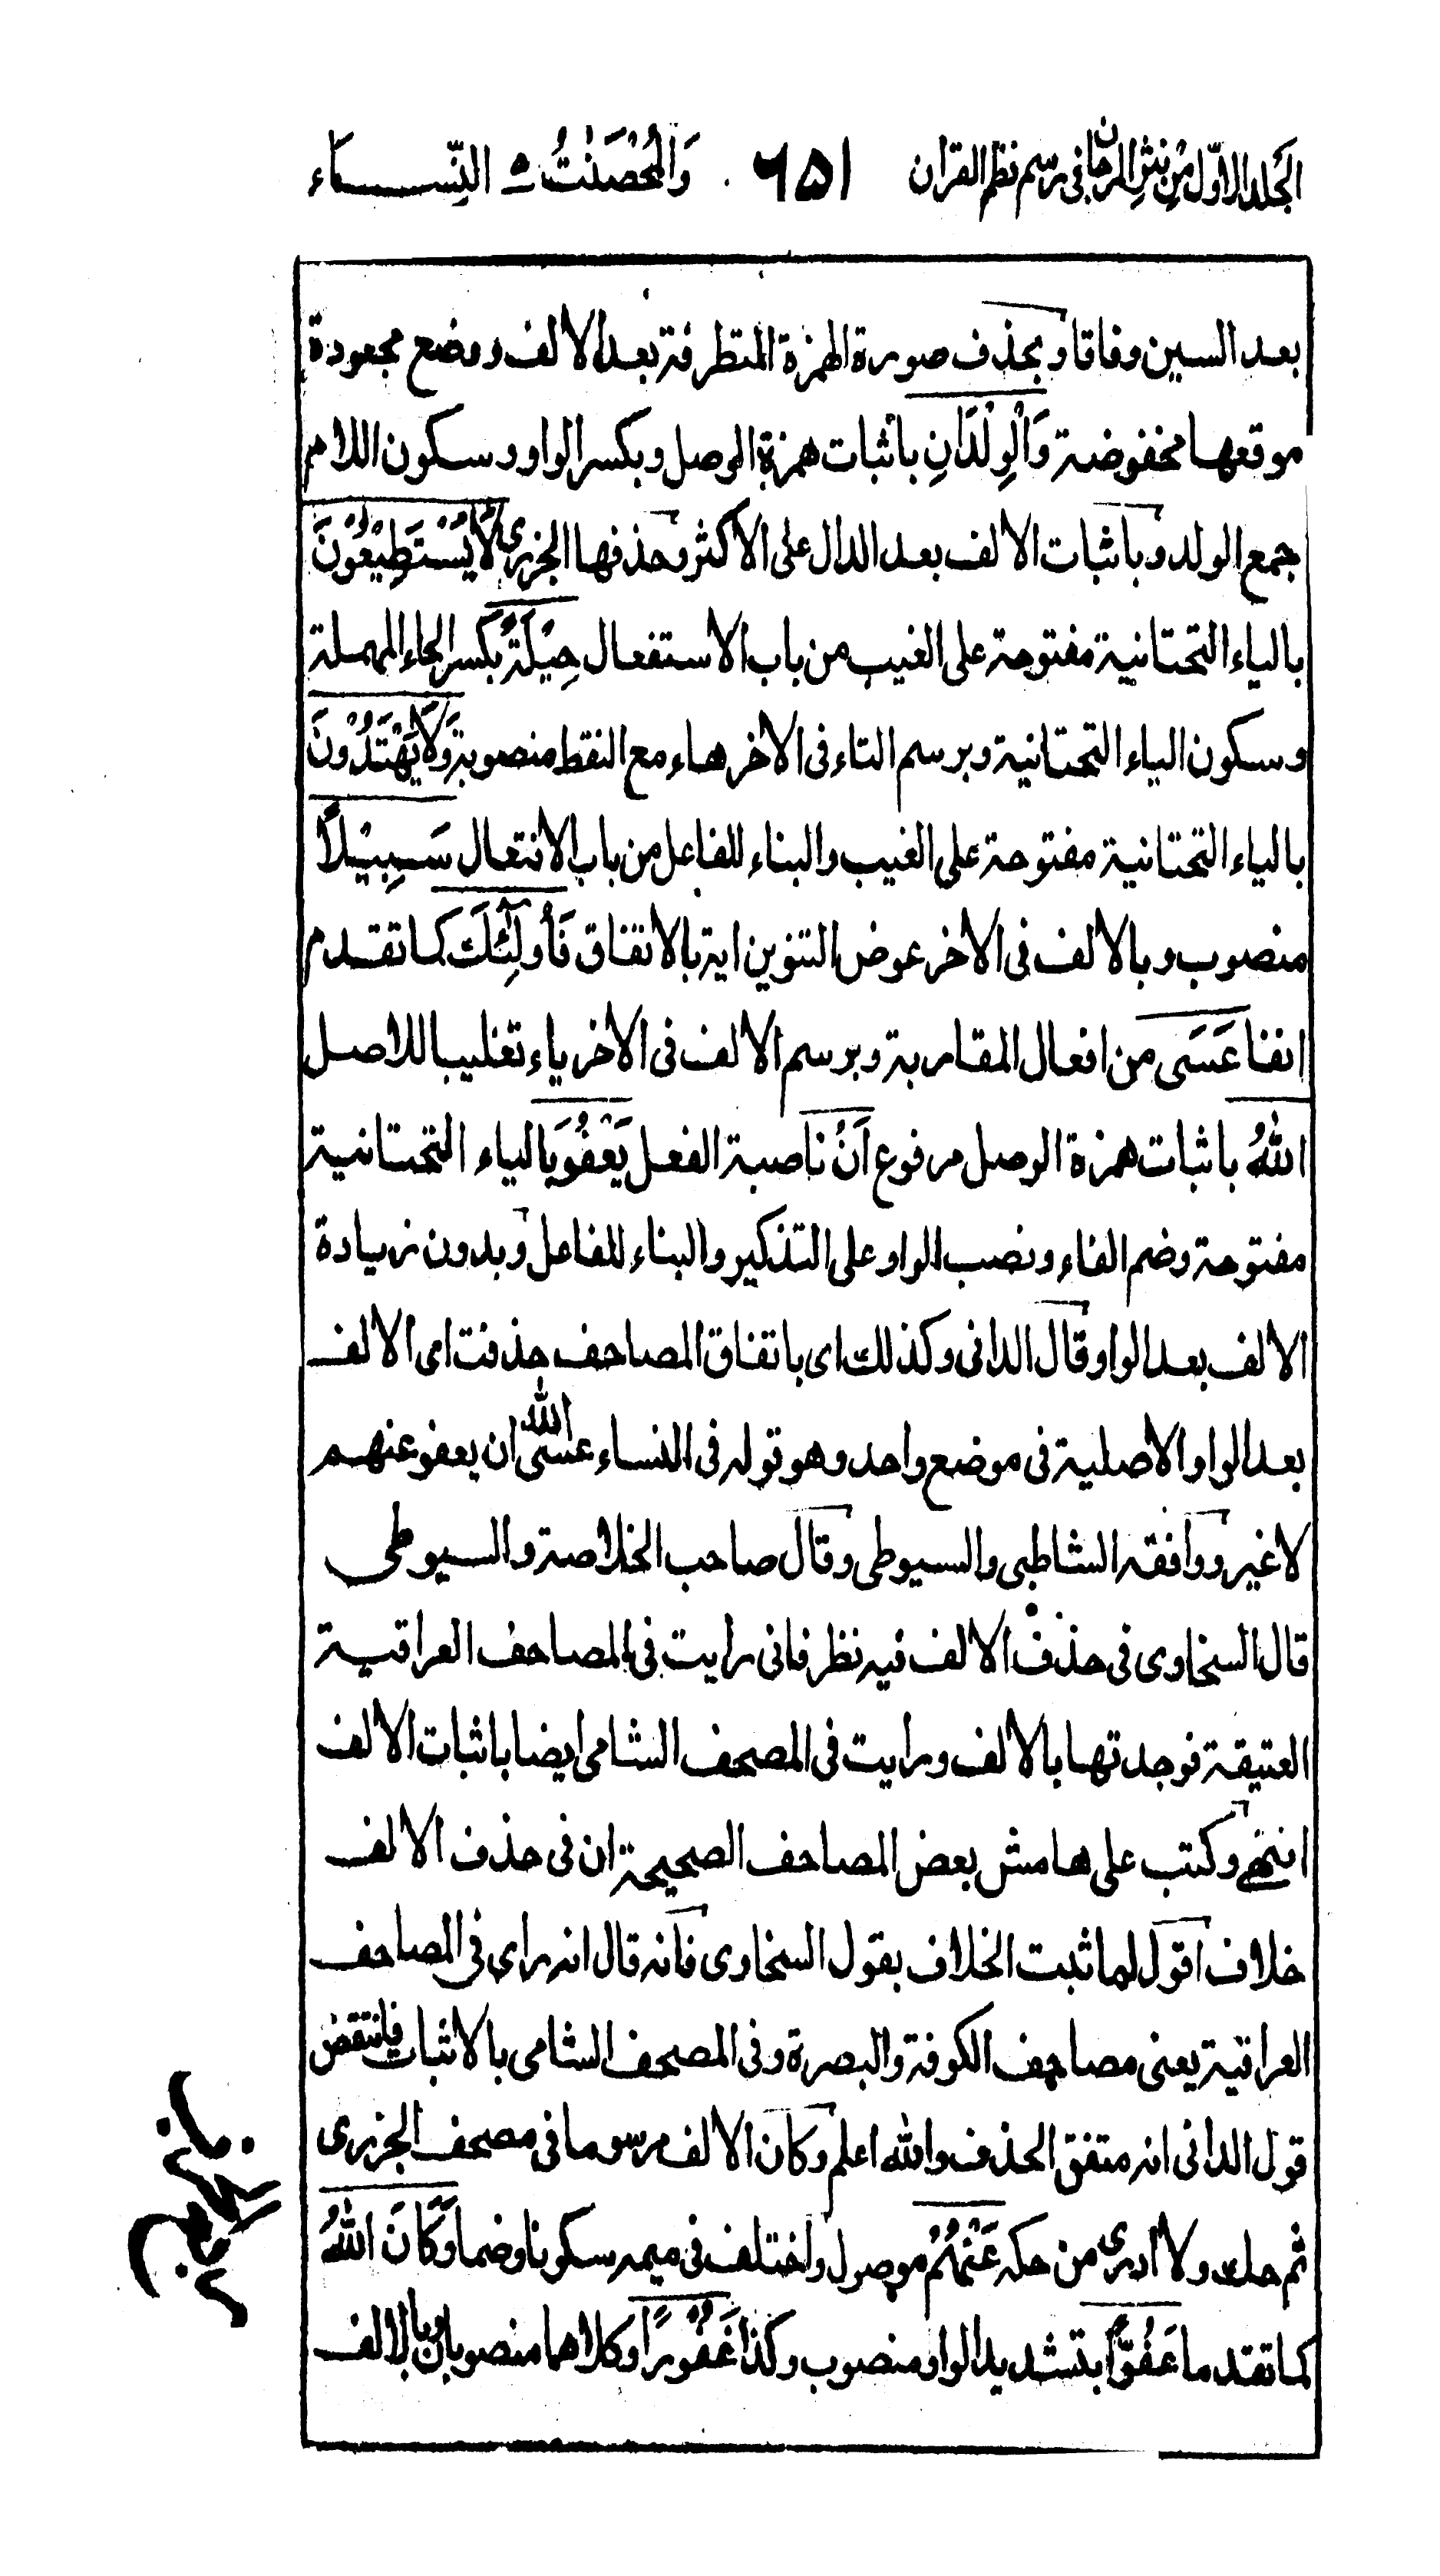 الجلد الاول من نثر المرجان فی رسم نظم القران ٦٥١ وَالْمُحْصَنٰتُ ٥ النِّسَاء
بعد السین وفاقا وبحذف صورة الهمزة المتطرفة بعد الالف ووضع مجعودة
موقعها مخفوضة وَالْوِلْدَانِ باثبات همزة الوصل وبکسر الواو وسکون اللام
جمع الولد وباثبات الالف بعد الدال علی الاکثر وحذفها الجزری لَا يَسْتَطِيْعُوْنَ
بالیاء التحتانیة مفتوحة علی الغیب من باب الاستفعال حِيْلَةً بکسر الحاء المهملة
وسکون الیاء التحتانیة وبرسم التاء فی الاخر هاء مع النقط منصوبة وَلَا يَهْتَدُوْنَ
بالیاء التحتانیة مفتوحة علی الغیب والبناء للفاعل من باب الافتعال سَبِيْلًا
منصوب وبالالف فی الاخر عوض التنوین ایة بالاتفاق فَأُولٰٓئِكَ کما تقدم
انفا عَسَى من افعال المقاربة وبرسم الالف فی الاخر یاء تغلیبا للاصل
اللّٰهُ باثبات همزة الوصل مرفوع اَنْ ناصبة الفعل يَعْفُوَ بالیاء التحتانیة
مفتوحة وضم الفاء ونصب الواو علی التذکیر والبناء للفاعل وبدون زیادة
الالف بعد الواو وقال الدانی وکذلك ای باتفاق المصاحف حذفت ای الالف
بعد الواو الاصلیة فی موضع واحد وهو قوله فی النساء عسی الله ان یعفو عنهم
لا غیر ووافقه الشاطبی والسیوطی وقال صاحب الخلاصة والسیوطی
قال السخاوی فی حذف الالف فیه نظر فانی رایت فی المصاحف العراقیة
العتیقة فوجدتها بالالف ورایت فی المصحف الشامی ایضا باثبات الالف
انتهی وکتب علی هامش بعض المصاحف الصحیحة ان فی حذف الالف
خلاف اقول لما ثبت الخلاف بقول السخاوی فانه قال انه رای فی المصاحف
العراقیة یعنی مصاحف الکوفة والبصرة وفی المصحف الشامی بالاثبات فانتقض
قول الدانی انه متفق الحذف والله اعلم وکان الالف مرسوما فی مصحف الجزری
ثم حك ولا ادری من حکه عَنْهُمْ موصول واختلف فی میمه سکونا وضما وَكَانَ اللّٰهُ
کما تقدما عَفُوًّا بتشدید الواو منصوب وکذا غَفُوْرًا وکلاهما منصوبان وبالالف